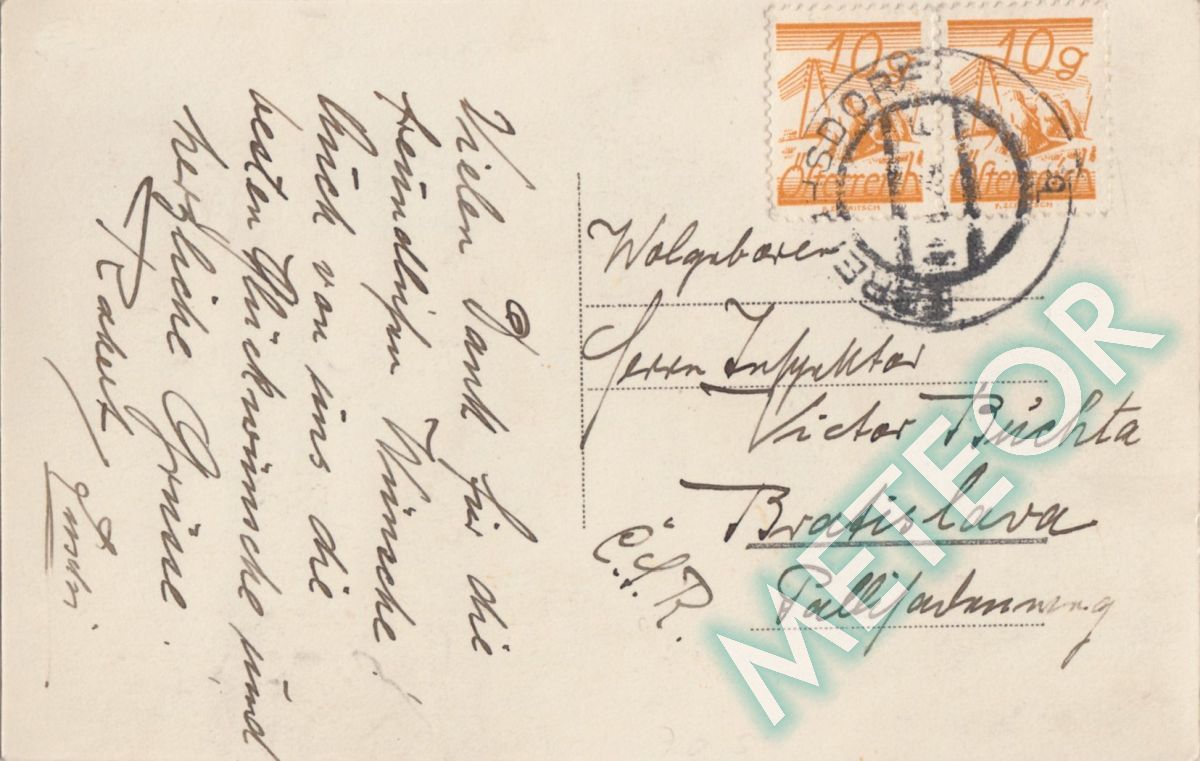 Vielen Dank für die
freundlichen Wünsche!
Auch von uns die
besten Glückwünsche und
herzliche Grüsse
10g
10g
Österreich
Österreich
Wolgeboren
Herrn Inspektor
Victor Buchta
Bratislava
Č.S.R.
Pallisadenweg
METEOR